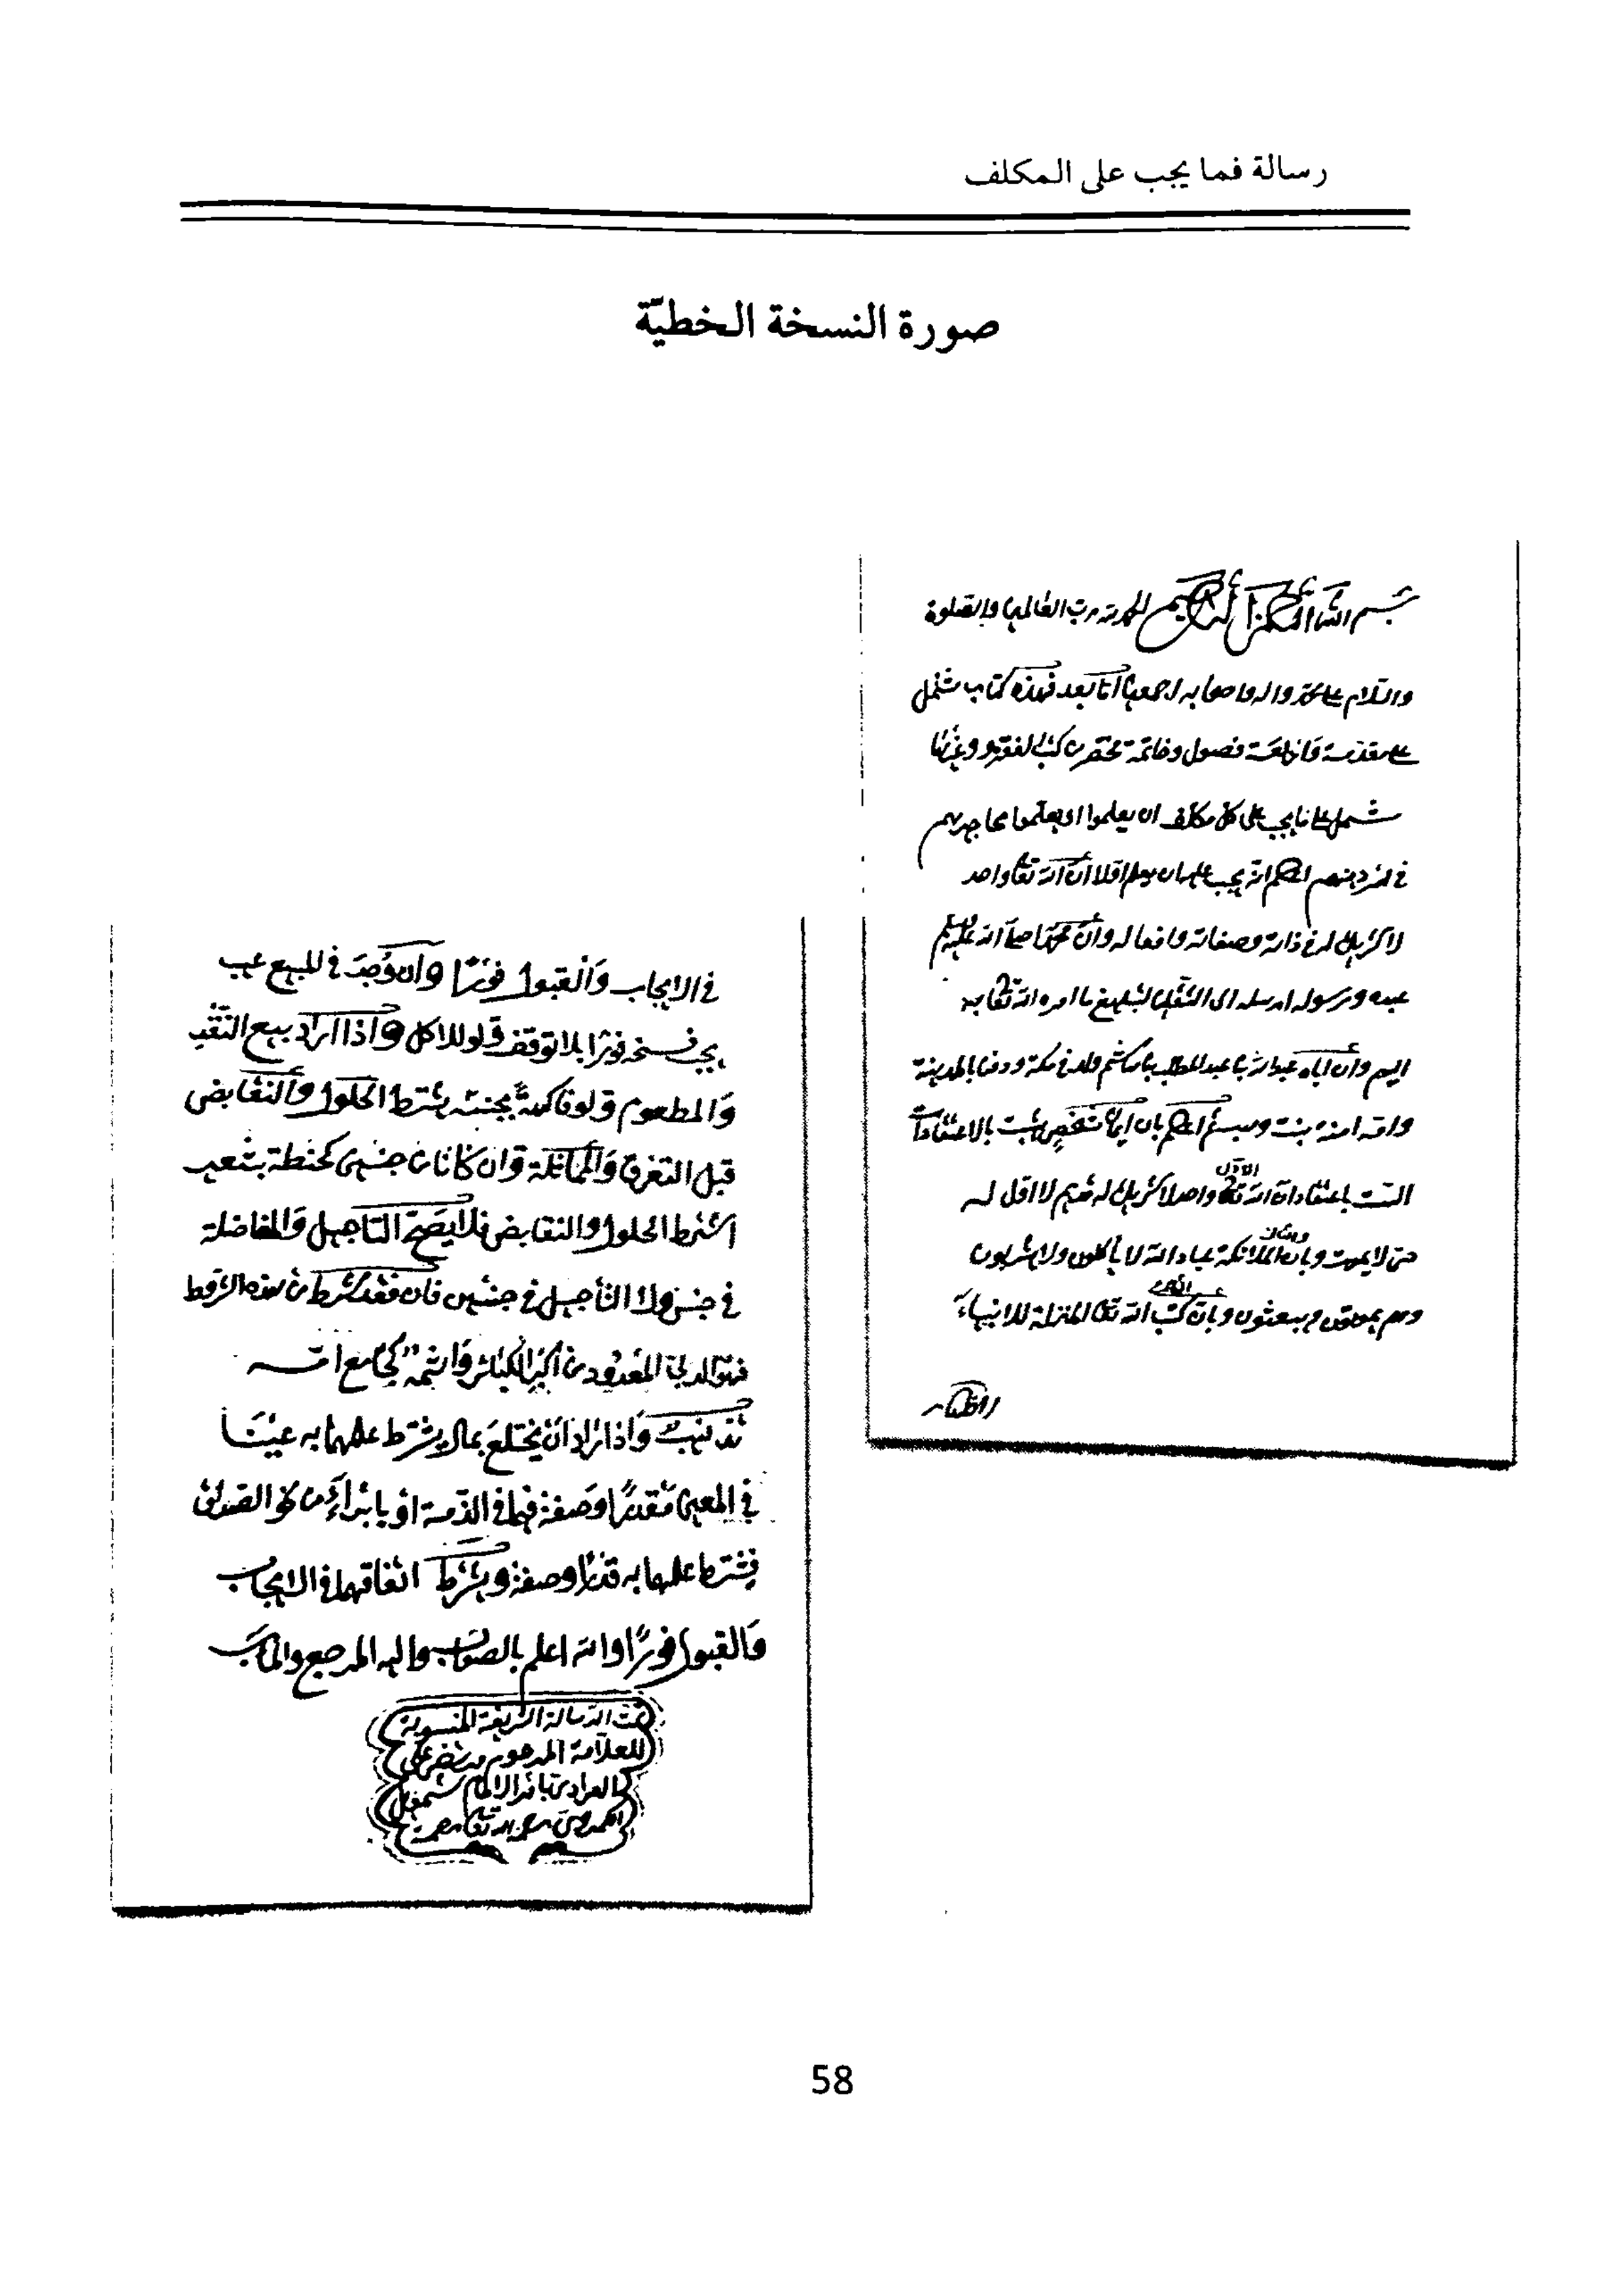 رسالة فما يجب على المكلف
صورة النسخة الخطيّة
بسم الله الرحمن الرحيم الحمد لله رب العالمين والصلوة
والسلام على محمد واله واصحابه اجمعين اما بعد فهذه كتاب شتمل
على مقدمة وأربعة فصول وخاتمة مختصر من كتب الفقه وغيرها
شتمل على ما يجب على كل مكلف ان يعلموا او يعلموا
في انه يجب عليه ان يعلم اولا ان الله تعا واحد
لا شريك له في ذاته وصفاته وافعاله وأن محمدا صلى الله عليه وسلم
عبده ورسوله ارسله الى الثقلين لتبليغ ما امره الله تعا به
اليهم وان أباه عبد الله بن عبد المطلب بن هاشم ولد في مكة ودفن بالمدينة
وامه امنه بنت وهب اعلم بان ايمان شخص يثبت بالاعتقادات
الست باعتقاد ان الله تعا واحد لا شريك له قديم لا اول له
الاول
حي لا يموت وبان الملائكة عباد الله لا يأكلون ولا يشربون
والثاني
وهم يموتون ويبعثون وبان كتب الله تعا المنزلة للانبياء
الثالث
في الايجاب والقبول فورًا وان وُجِدَ في المبيع عيب
يفسخه فورًا بلا توقف ولو للاكل واذا اراد بيع النقد
والمطعوم ولو فاكهة بجنسه يشترط الحلول والتقابض
قبل التفرق والمماثلة وان كانا من جنسين كحنطة بشعير
اشترط الحلول والتقابض فلا يصح التاجيل والمفاضلة
في جنس ولا التأجيل في جنسين فان فقد شرط من هذه الشروط
فهو الربى المعدود من أكبر الكبائر وإثمه كمن جامع امه
تذنيب واذا اراد ان يختلع بمال يشترط علمهما به عينا
في المعين وقدرا وصفة فيما في الذمة او بابراء من نحو الصداق
فيشترط علمهما به قدرا وصفة ويشترط اتفاقهما في الايجاب
والقبول فورًا والله اعلم بالصواب واليه المرجع والمآب
تمت الرسالة الشريفة المنسوبة
للعلامة المرحوم
58